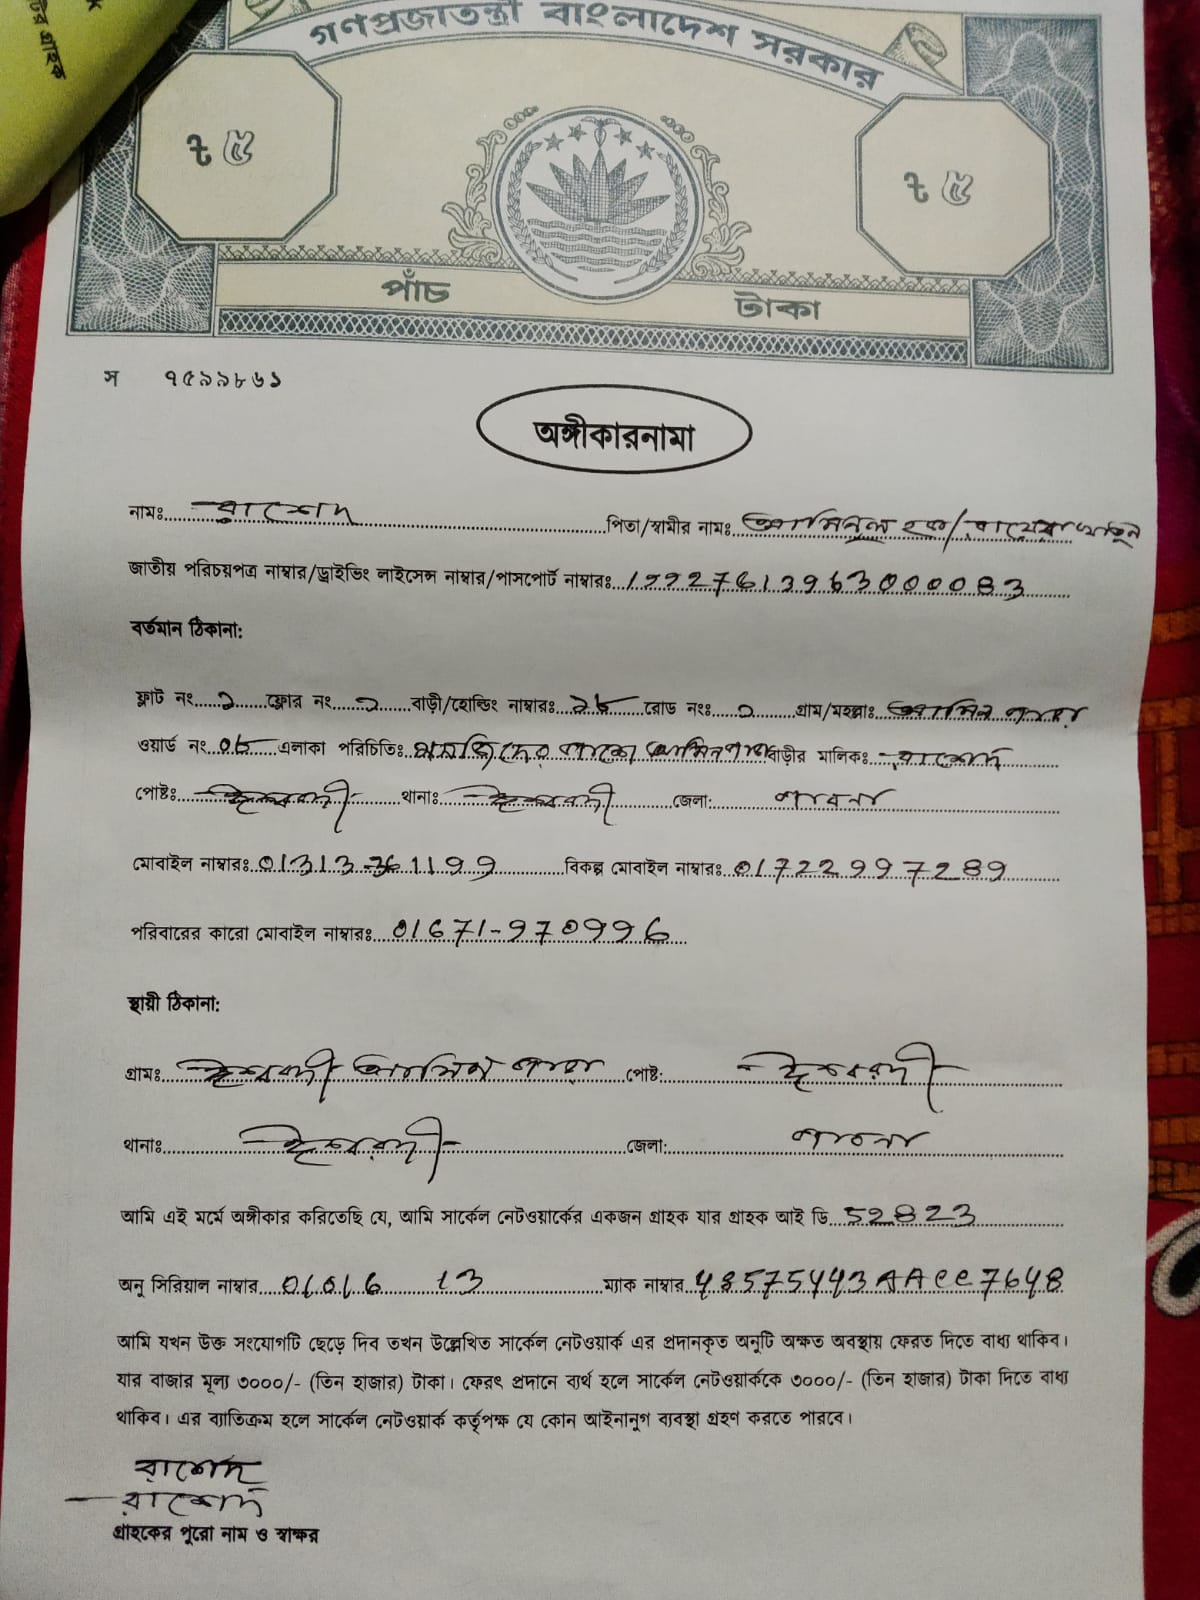 K
টির গ্রাহক
গণপ্রজাতন্ত্রী বাংলাদেশ সরকার
ট ৫ ট ৫
পাঁচ টাকা
স ৭৫৯৯৮৬১
অঙ্গীকারনামা
নামঃ রাশেদ পিতা/স্বামীর নামঃ আমিনুল হক/
জাতীয় পরিচয়পত্র নাম্বার/ড্রাইভিং লাইসেন্স নাম্বার/পাসপোর্ট নাম্বারঃ 19927613963000083
বর্তমান ঠিকানা:
ফ্লাট নং ১ ফ্লোর নং ১ বাড়ী/হোল্ডিং নাম্বারঃ ২৮ রোড নংঃ ১ গ্রাম/মহল্লাঃ আমিন পাড়া
ওয়ার্ড নং ০৮ এলাকা পরিচিতিঃ মসজিদের পাশে আমিনপাড়া বাড়ীর মালিকঃ রাশেদ
পোষ্টঃ ঈশ্বরদী থানাঃ ঈশ্বরদী জেলা: পাবনা
মোবাইল নাম্বারঃ 01313-361199 বিকল্প মোবাইল নাম্বারঃ 01722997289
পরিবারের কারো মোবাইল নাম্বারঃ 01671-970996
স্থায়ী ঠিকানা:
গ্রামঃ ঈশ্বরদী আমিন পাড়া পোষ্ট: ঈশ্বরদী
থানাঃ ঈশ্বরদী জেলা: পাবনা
আমি এই মর্মে অঙ্গীকার করিতেছি যে, আমি সার্কেল নেটওয়ার্কের একজন গ্রাহক যার গ্রাহক আই ডি 52823
অনু সিরিয়াল নাম্বার 01016 13 ম্যাক নাম্বার 48575443AAcc7648
আমি যখন উক্ত সংযোগটি ছেড়ে দিব তখন উল্লেখিত সার্কেল নেটওয়ার্ক এর প্রদানকৃত অনুটি অক্ষত অবস্থায় ফেরত দিতে বাধ্য থাকিব।
যার বাজার মূল্য ৩০০০/- (তিন হাজার) টাকা। ফেরৎ প্রদানে ব্যর্থ হলে সার্কেল নেটওয়ার্ককে ৩০০০/- (তিন হাজার) টাকা দিতে বাধ্য
থাকিব। এর ব্যাতিক্রম হলে সার্কেল নেটওয়ার্ক কর্তৃপক্ষ যে কোন আইনানুগ ব্যবস্থা গ্রহণ করতে পারবে।
রাশেদ
রাশেদ
গ্রাহকের পুরো নাম ও স্বাক্ষর